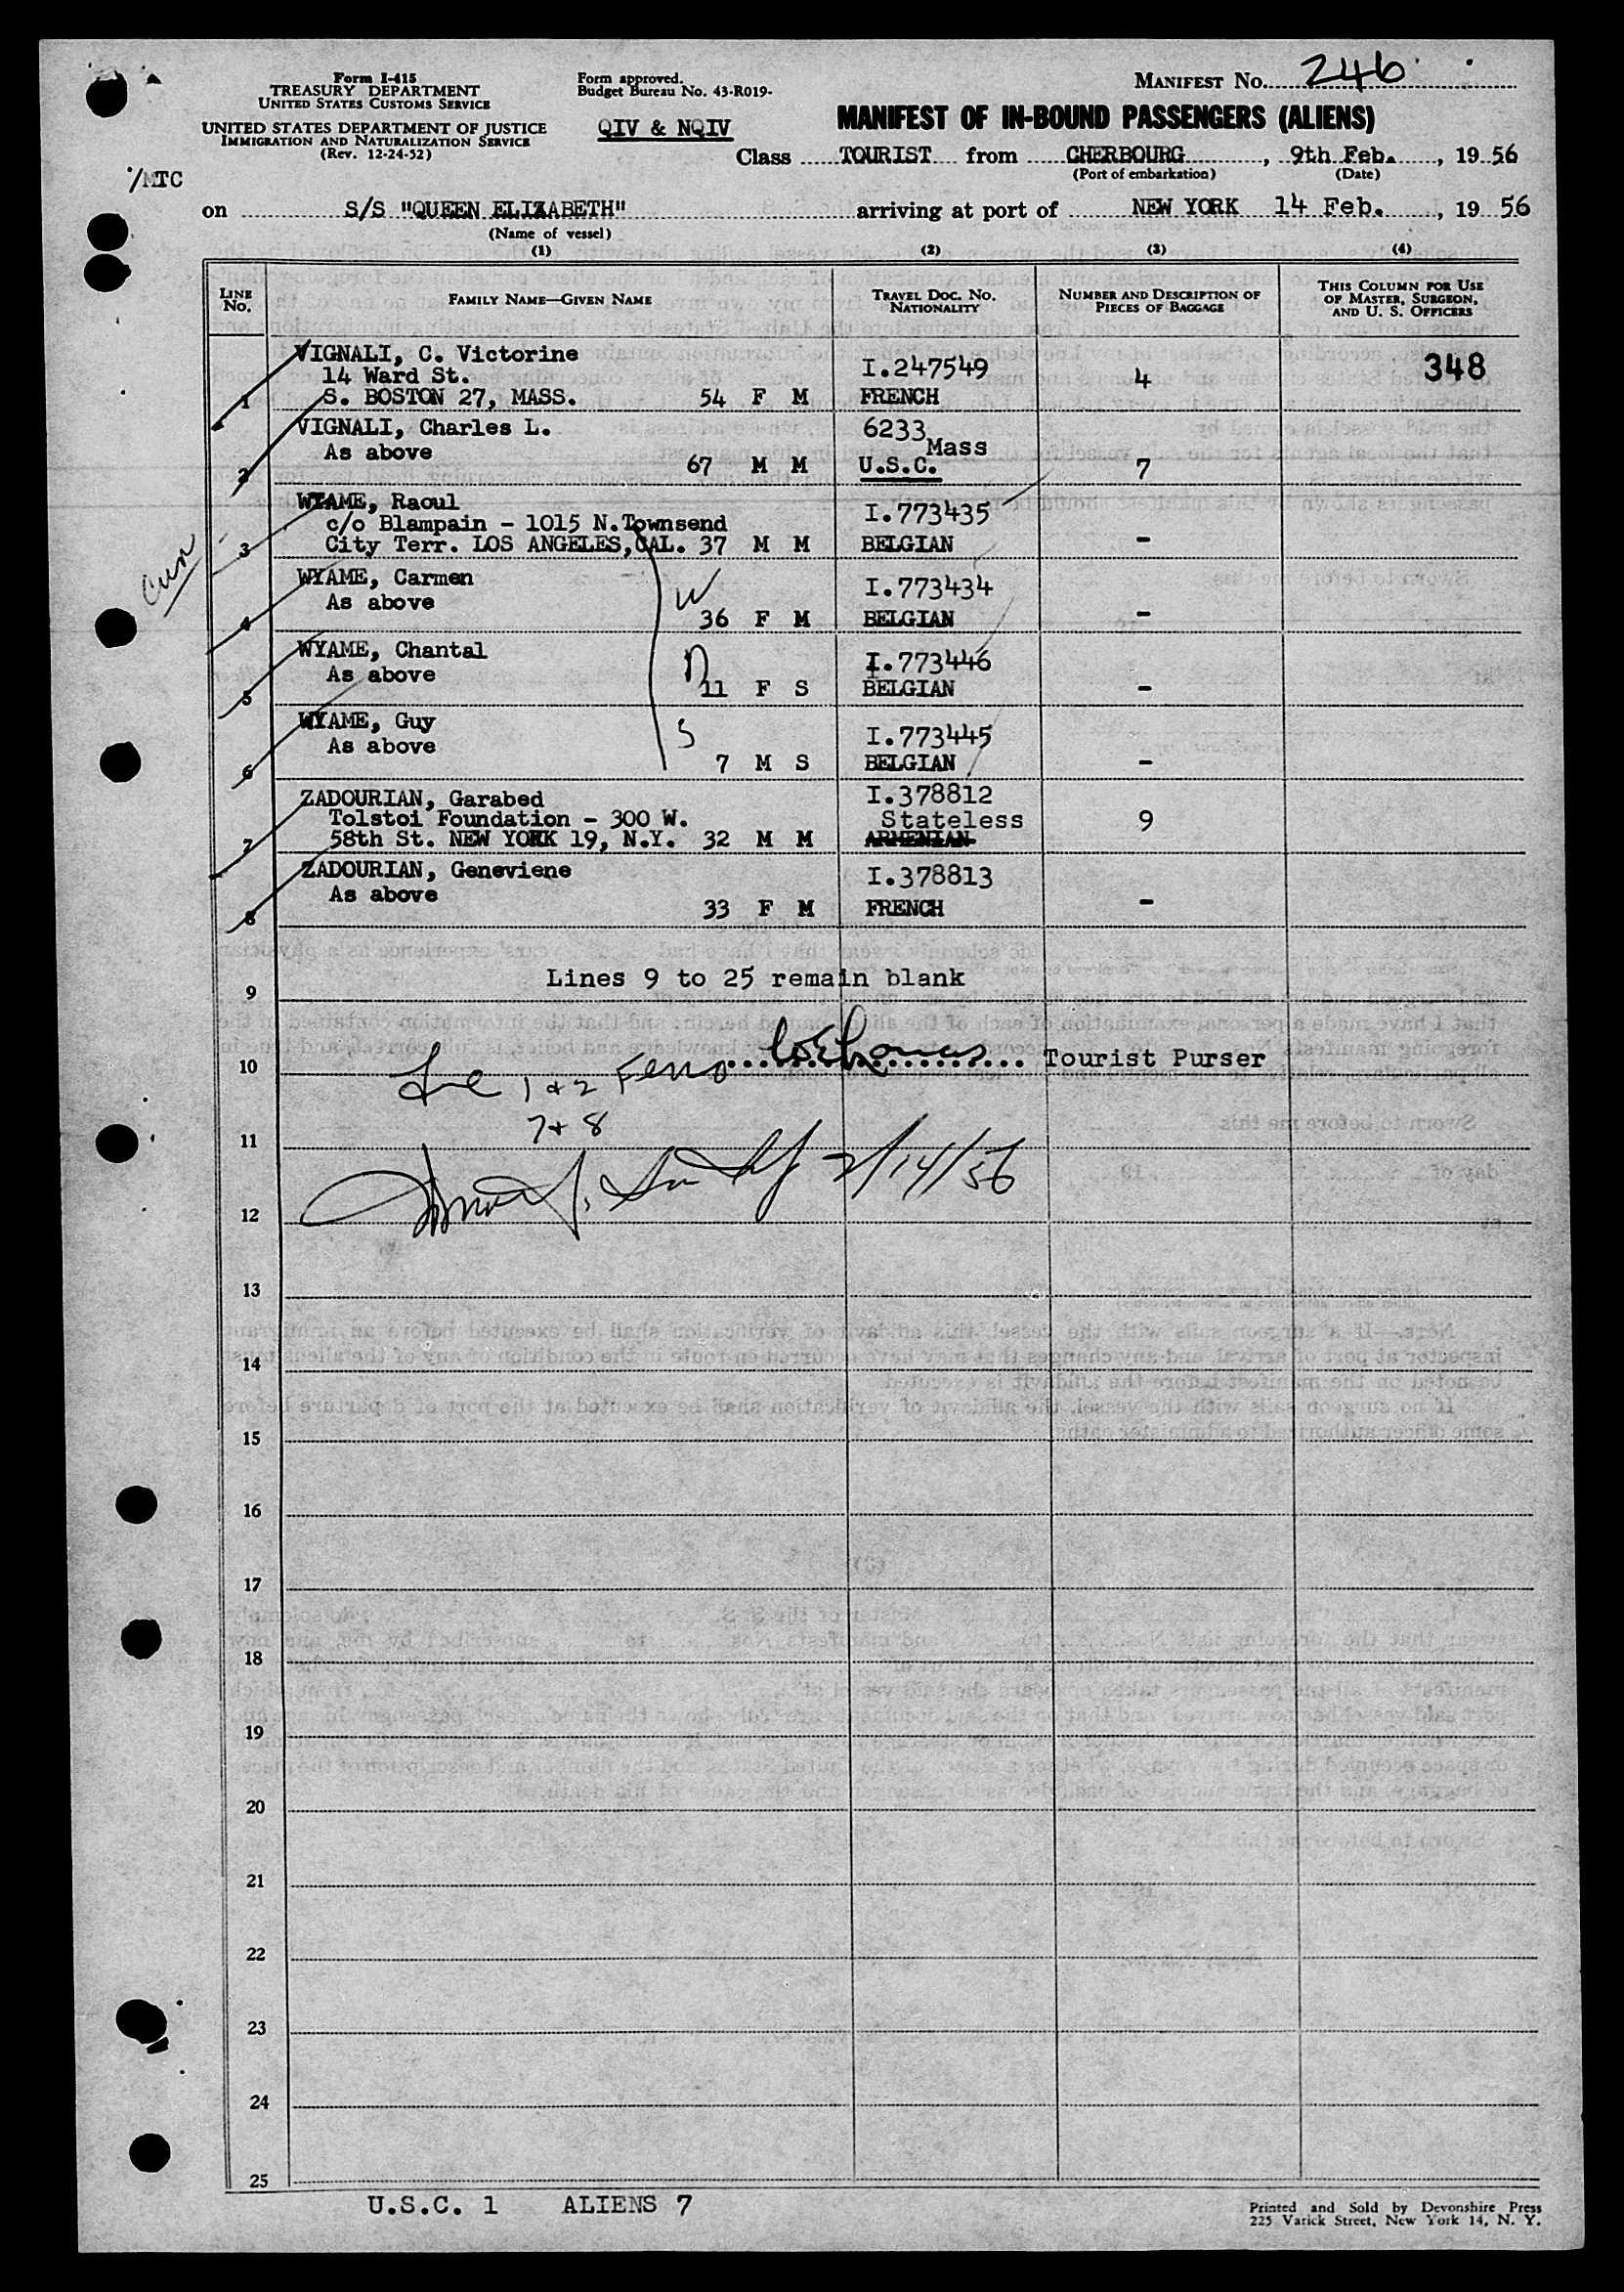 Form I-415
TREASURY DEPARTMENT
UNITED STATES CUSTOMS SERVICE
UNITED STATES DEPARTMENT OF JUSTICE
IMMIGRATION AND NATURALIZATION SERVICE
(Rev. 12-24-52)
Form approved.
Budget Bureau No. 43-R019-
QIV & NQIV
MANIFEST NO. 246
MANIFEST OF IN-BOUND PASSENGERS (ALIENS)
Class TOURIST from CHERBOURG, 9th Feb., 19 56
(Port of embarkation) (Date)
/MTC
on S/S "QUEEN ELIZABETH" arriving at port of NEW YORK 14 Feb., 19 56
(Name of vessel)
(1) (2) (3) (4)
LINE NO. FAMILY NAME—GIVEN NAME TRAVEL DOC. NO. NATIONALITY NUMBER AND DESCRIPTION OF PIECES OF BAGGAGE THIS COLUMN FOR USE OF MASTER, SURGEON, AND U. S. OFFICERS
VIGNALI, C. Victorine I.247549 348
14 Ward St. 4
1 S. BOSTON 27, MASS. 54 F M FRENCH
VIGNALI, Charles L. 6233
As above Mass
2 67 M M U.S.C. 7
WYAME, Raoul I.773435
c/o Blampain - 1015 N.Townsend
3 City Terr. LOS ANGELES, CAL. 37 M M BELGIAN -
WYAME, Carmen I.773434
As above W
4 36 F M BELGIAN -
WYAME, Chantal I.773446
As above n
5 11 F S BELGIAN -
WYAME, Guy I.773445
As above S
6 7 M S BELGIAN -
ZADOURIAN, Garabed I.378812
Tolstoi Foundation - 300 W. Stateless 9
7 58th St. NEW YORK 19, N.Y. 32 M M ARMENIAN
ZADOURIAN, Geneviene I.378813
As above
8 33 F M FRENCH -
Lines 9 to 25 remain blank
9
10 1 & 2 Tourist Purser
7 + 8
11
2/14/56
12
13
14
15
16
17
18
19
20
21
22
23
24
25
U.S.C. 1 ALIENS 7
Printed and Sold by Devonshire Press
225 Varick Street, New York 14, N. Y.